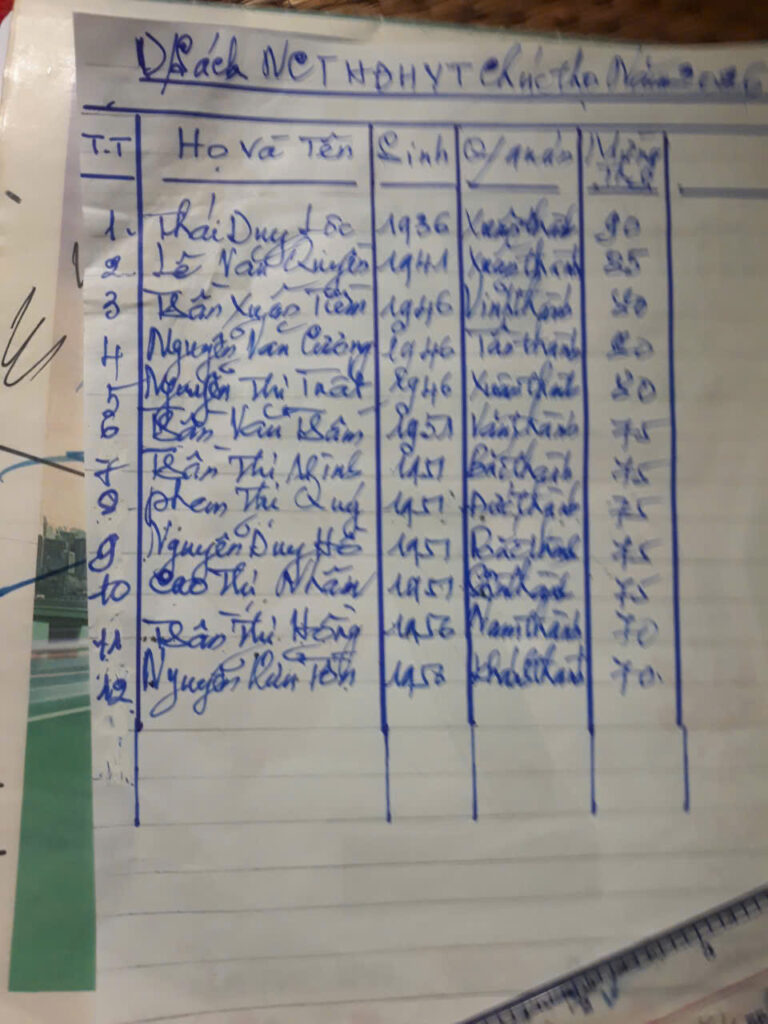 D/Sách NCT HĐHYT Chúc thọ Năm 2026
T.T Họ Và Tên Sinh Q/quán Mừng Thọ
1. Thái Duy 1936 Xuân thành 90
2. Lê Văn Quyền 1941 Xuân thành 85
3 Trần Xuân Tiềm 1946 Vĩnh thành 80
4 Nguyễn Văn Cường 1946 thành 80
5 Nguyễn Thị 1946 Xuân thành 80
6 Trần Văn 1951 Văn thành 75
7 Trần Thị Minh 1951 Bắc thành 75
8 Phạm Thị Quý 1951 thành 75
9 Nguyễn Duy 1951 Bắc thành 75
10 Cao Thị Nhâm 1951 thành 75
11 Trần Thị Hồng 1956 Nam thành 70
12 Nguyễn 1956 thành 70